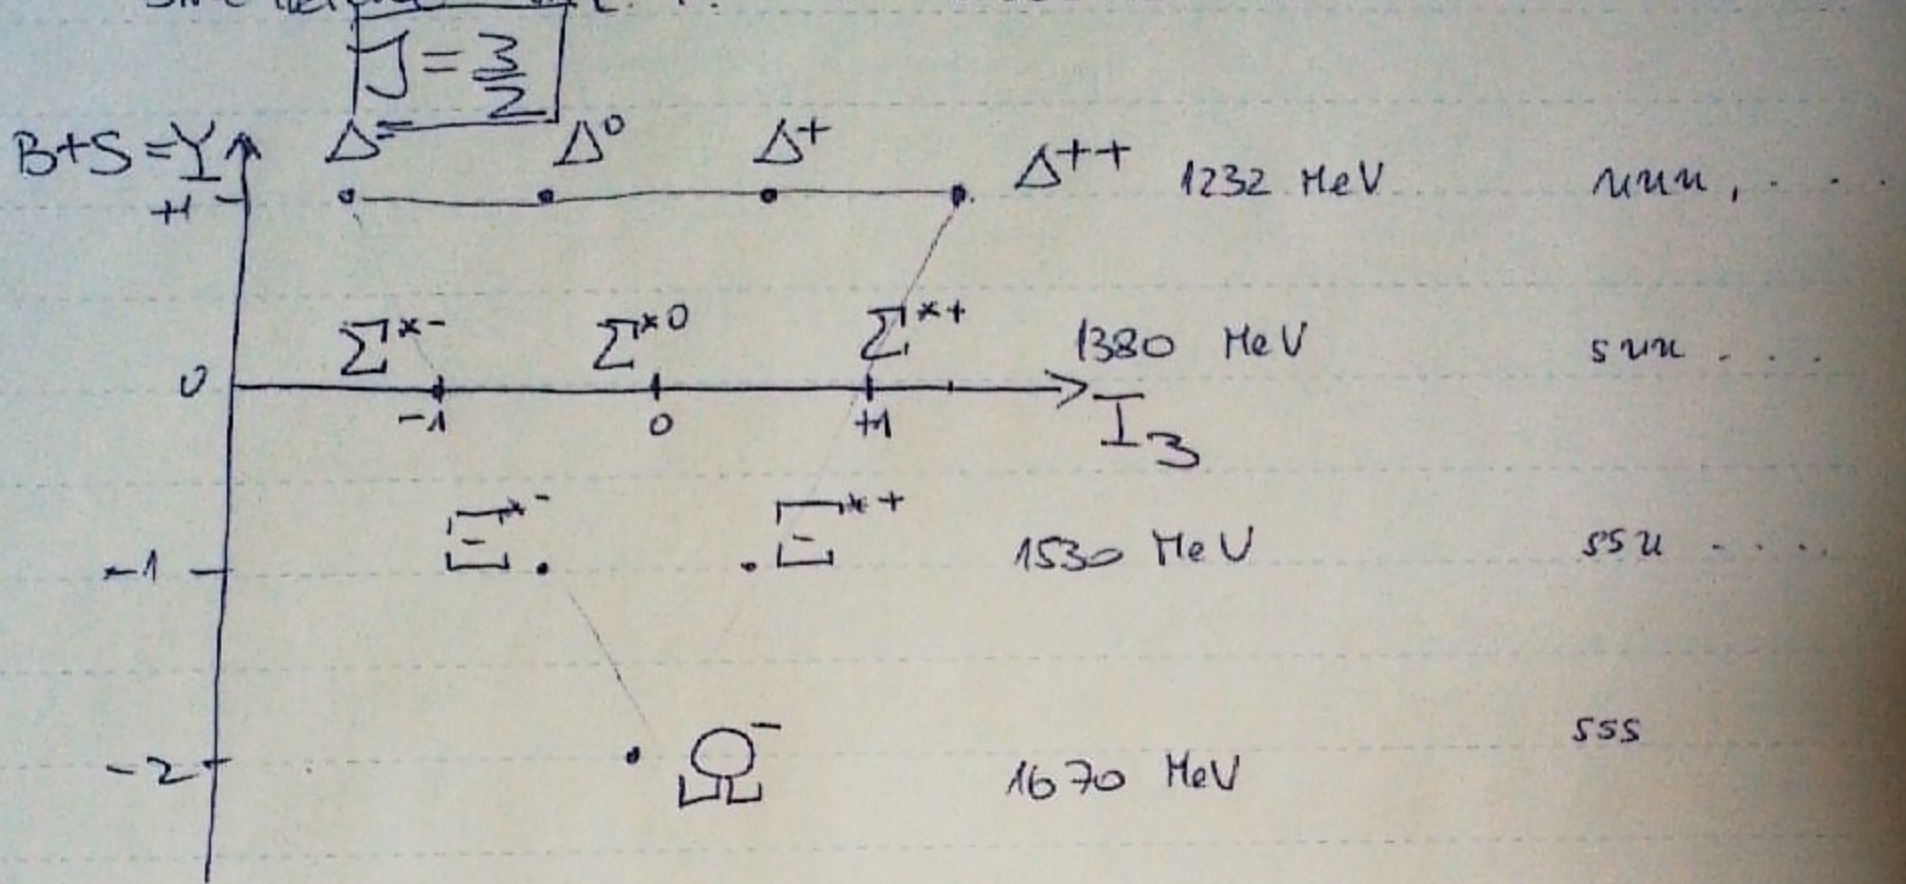 J = 3/2
B+S = Y
Δ⁻ Δ⁰ Δ⁺ Δ⁺⁺ 1232 MeV uuu, . . .
+1
Σ*⁻ Σ*⁰ Σ*⁺ 1380 MeV suu . . .
0 -1 0 +1 I₃
Ξ*⁻ Ξ*⁺ 1530 MeV ssu . . . .
-1
Ω⁻ sss
-2 1670 MeV